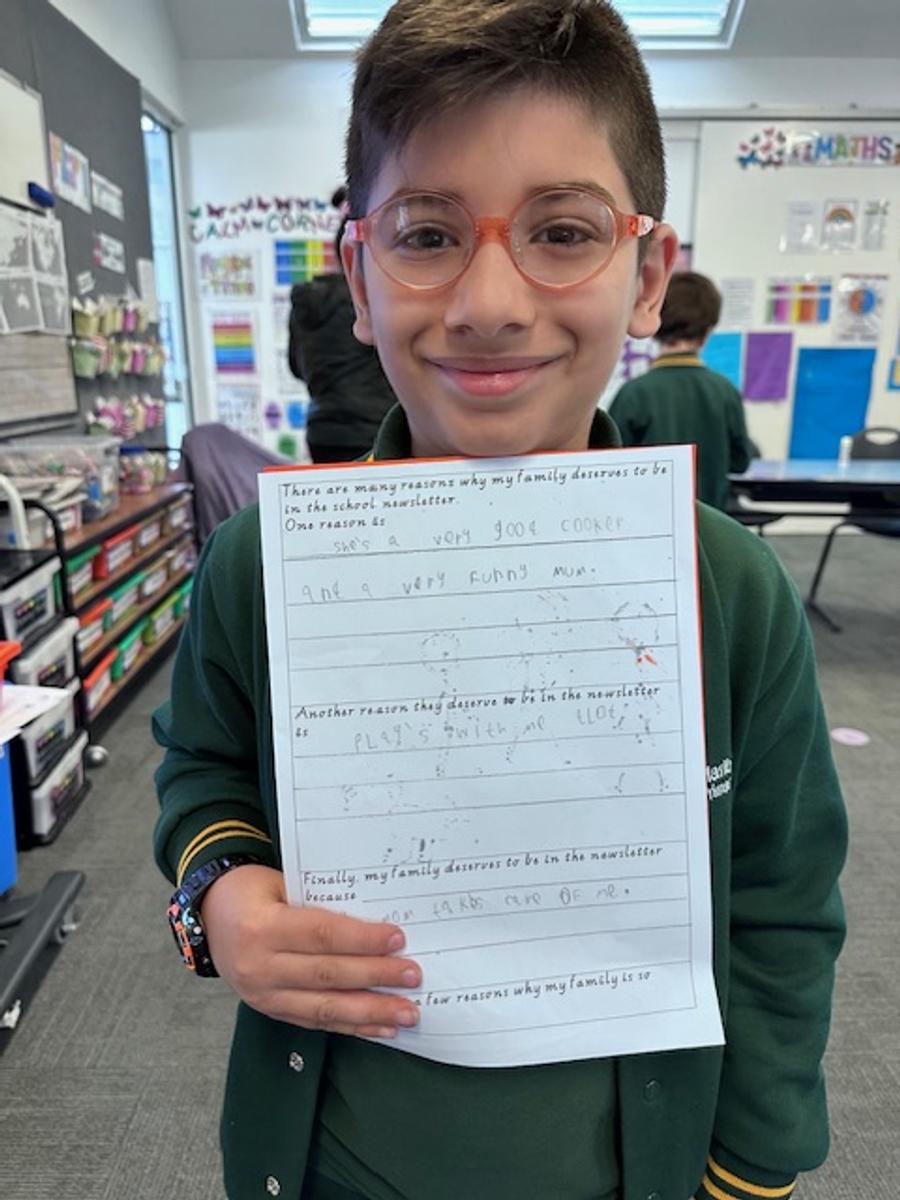 CALM CORNER
MATHS
There are many reasons why my family deserves to be
in the school newsletter.
One reason is
she's a very good cooker
and a very funny mum.
Another reason they deserve to be in the newsletter
is
PLay's with me
Finally, my family deserves to be in the newsletter
because
mom takes care OF me.
a few reasons why my family is so